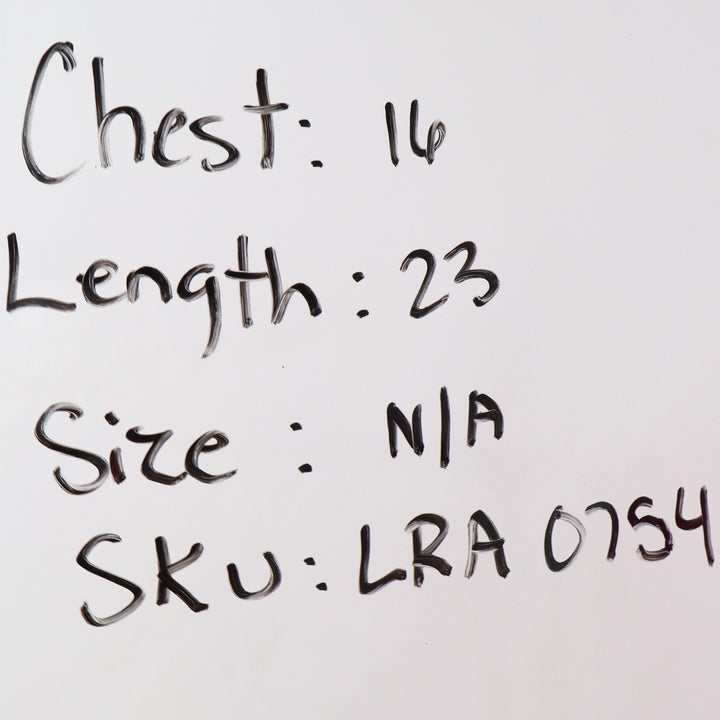 Chest: 16
Length: 23
Size: N/A
SKU: LRA 0754